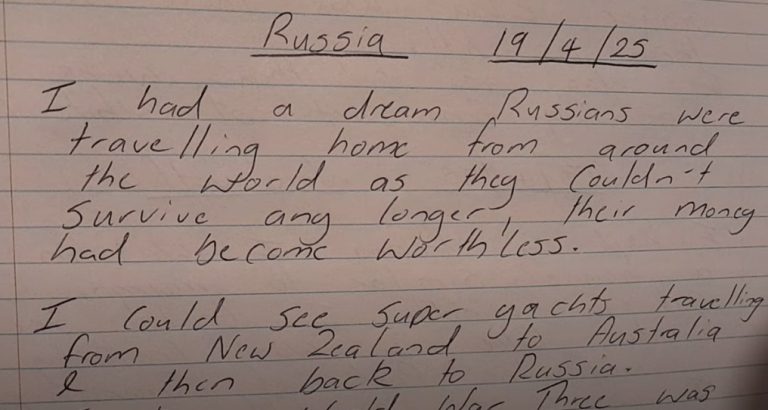 Russia 19/4/25
I had a dream Russians were
travelling home from around
the world as they couldn't
survive any longer, their money
had become worthless.
I could see super yachts travelling
from New Zealand to Australia
& then back to Russia.
War Three was